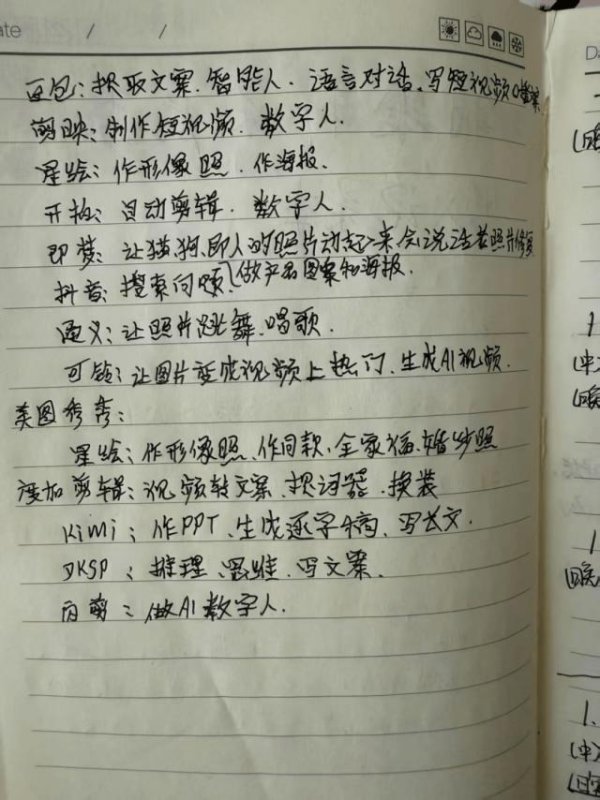 ate / /
豆包：提取文案、智能人、语言对话、写短视频口播案
剪映：制作短视频、数字人.
星绘：作形像照、作海报.
开拍：自动剪辑、数字人.
即梦：让猫狗、即人的照片动起来会说话老照片修复
抖音：搜索问题、做产品图案和海报.
通义：让照片跳舞、唱歌.
可铃：让图片变成视频上热门、生成AI视频.
美图秀秀：
星绘：作形像照、作同款、全家福、婚纱照
度加剪辑：视频转文案、提词器、换装
Kimi：作PPT、生成逐字稿、写长文.
DKSP：推理、思维、写文案.
必剪：做AI数字人.
Da
1
1
1.